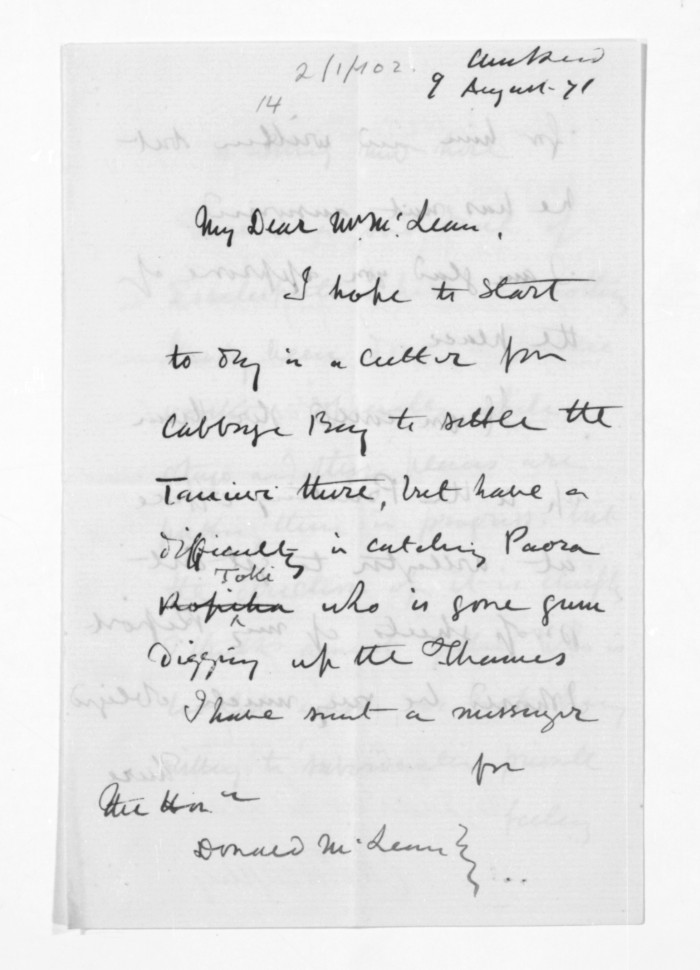 2/1/102.
14
Auckland
9 August 71
My Dear Mr. McLean,
I hope to start
to day in a cutter for
Cabbage Bay to settle the
Taniwi there, but have a
difficulty in catching Paora
Toki
Ropiha who is gone gum
digging up the Thames
I have sent a messenger
for
The Honle
Donald McLean